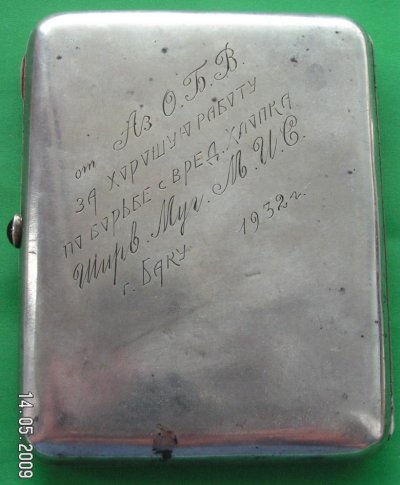 от Аз О.Б.В.
за хорошую работу
по борьбе с вред. хлопка
Ширв. Муг. М.И.С.
г. Баку 1932 г.
14.05.2009